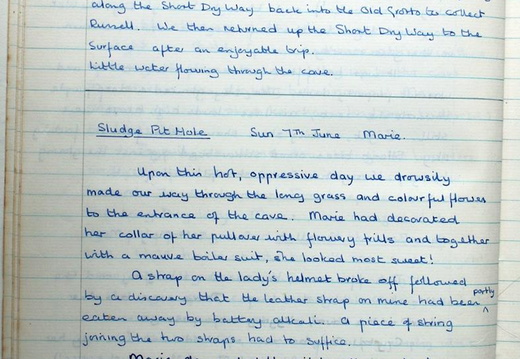 along the Short Dry Way back into the Old Grotto to collect
Russell. We then returned up the Short Dry Way to the
Surface after an enjoyable trip.
Little water flowing through the cave.
Sludge Pit Hole Sun 7th June Marie.
Upon this hot, oppressive day we drowsily
made our way through the long grass and colourful flowers
to the entrance of the cave. Marie had decorated
her collar of her pullover with flowery frills and together
with a mauve boiler suit, she looked most sweet!
A strap on the lady's helmet broke off followed
by a discovery that the leather strap on mine had been partly
eaten away by battery alkali. A piece of string
joining the two straps had to suffice.
Marie